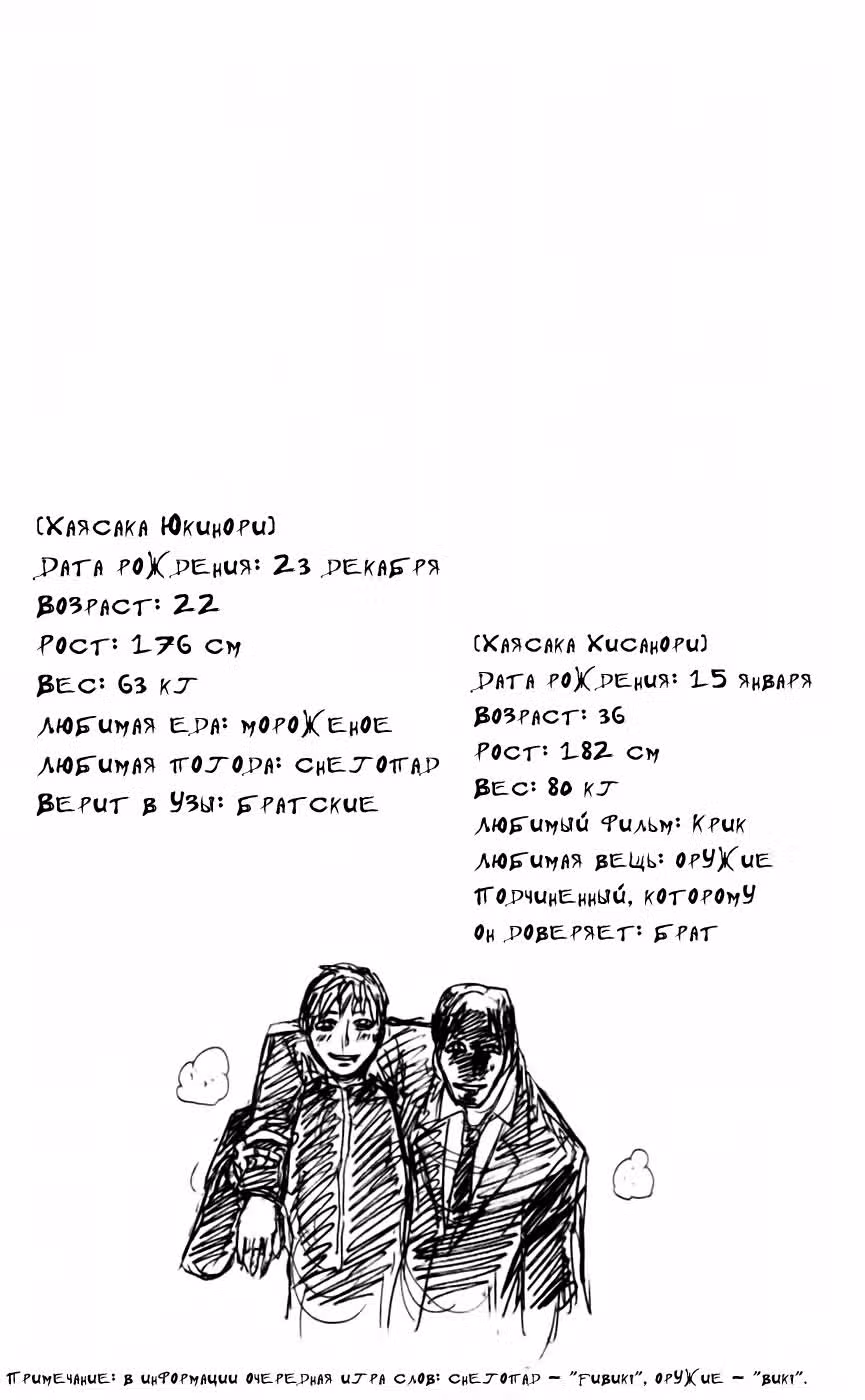 [Хаясака Юкинори]
Дата рождения: 23 декабря
Возраст: 22
Рост: 176 см
Вес: 63 кг
Любимая еда: мороженое
Любимая погода: снегопад
Верит в узы: братские
[Хаясака Хисанори]
Дата рождения: 15 января
Возраст: 36
Рост: 182 см
Вес: 80 кг
Любимый фильм: Крик
Любимая вещь: оружие
Подчиненный, которому
он доверяет: брат
Примечание: в информации очередная игра слов: снегопад – "fubuki", оружие – "buki".